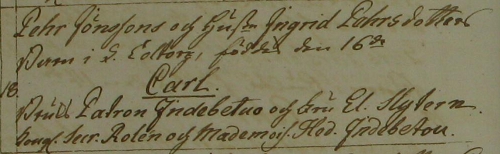 Pehr Jönssons och Hust: Ingrid Pehrsdotters
Barn i S. Lottorp, född den 16de
18. Carl.
Bruks Patron Indebetuo och Fru El. Slytern.
Kongl. Secr. Rolén och Mademois. Hed. Indebetou.